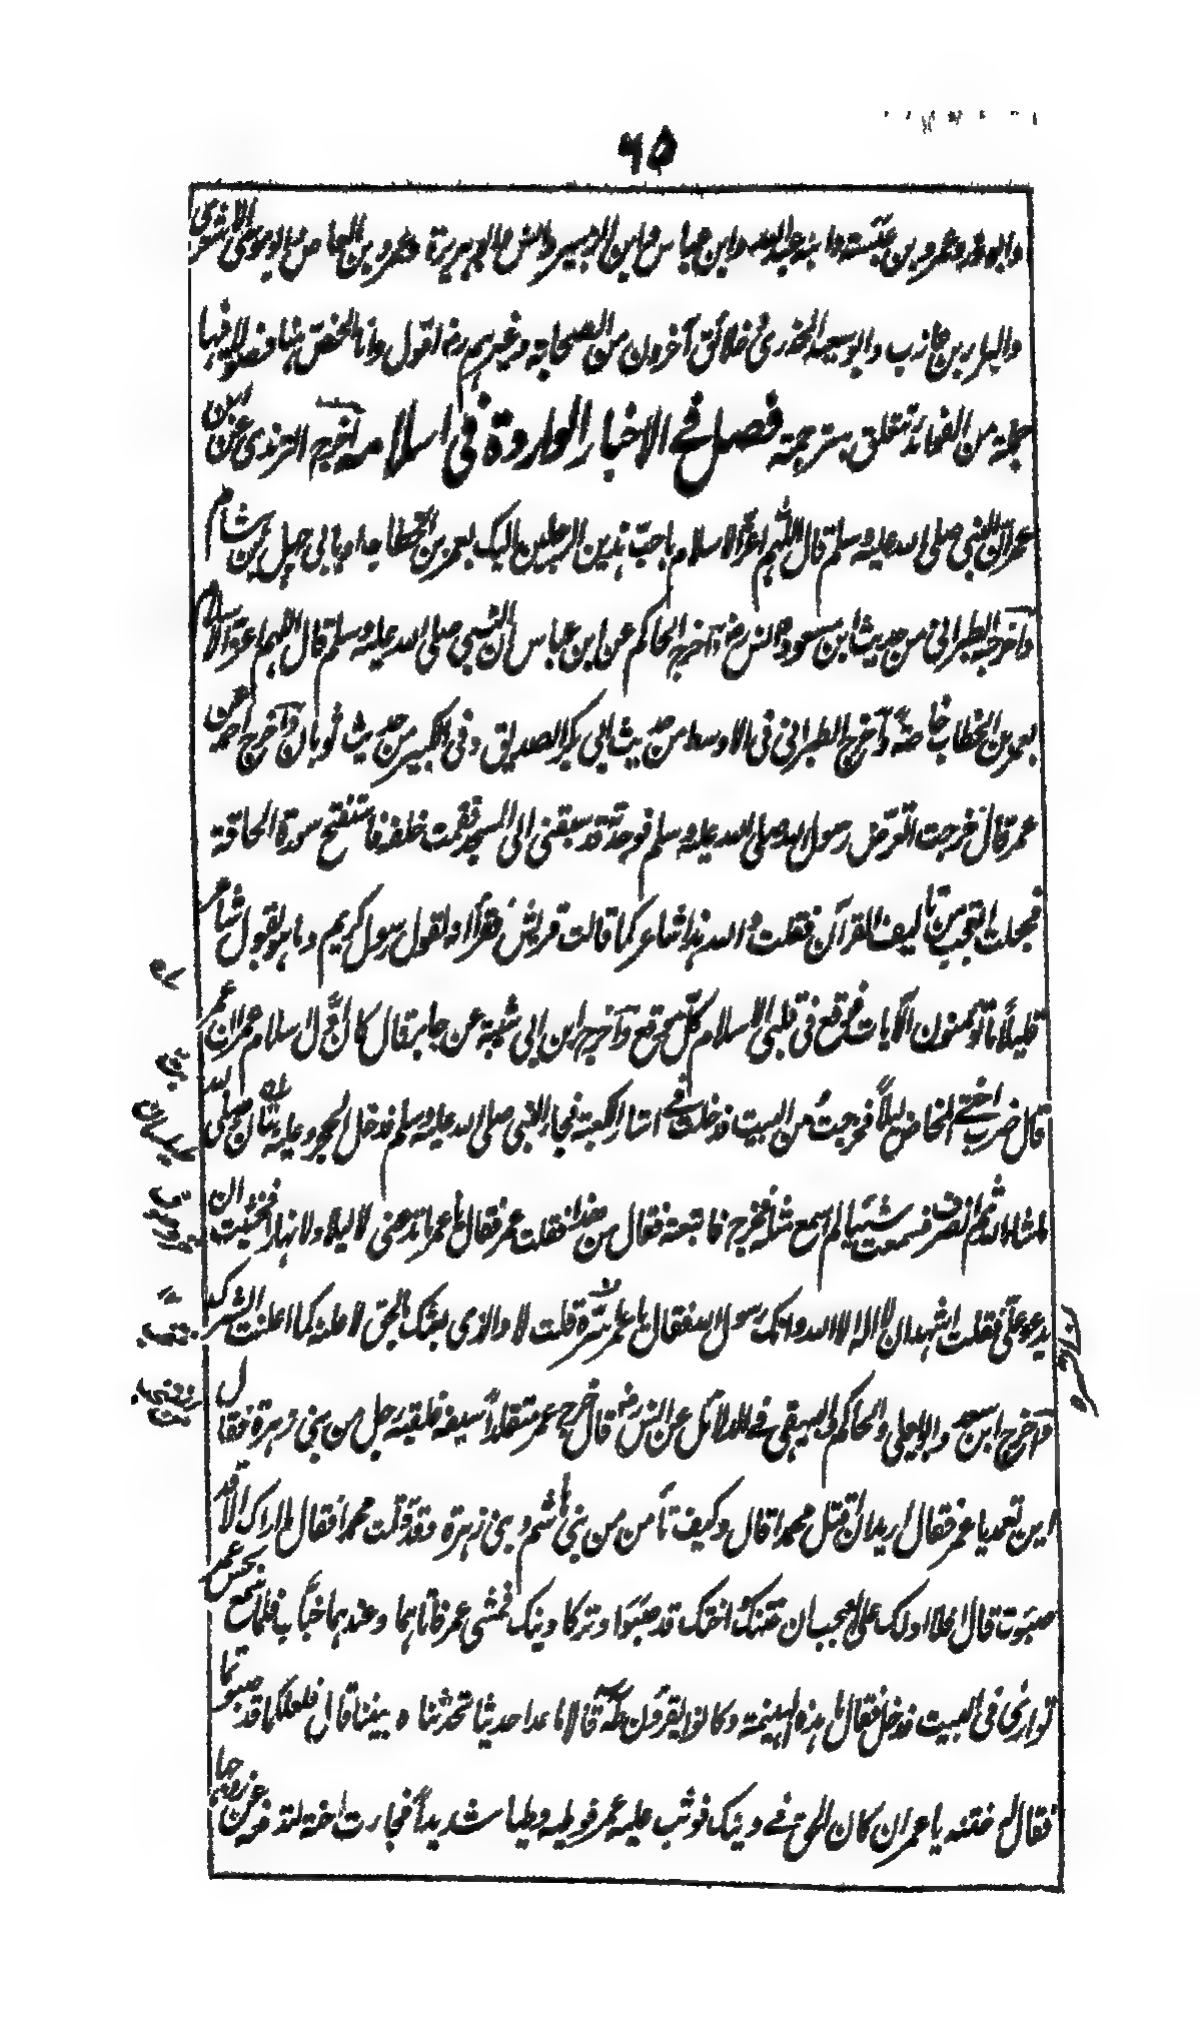 ٦٥
وابوذر وعمرو بن عبسة وابنه عبد الله وابن عباس وابن الزبير وانس وابو هريرة وعمرو بن العاص وابو موسى الاشعرى
والبراء بن عازب وابو سعيد الخدرى وخلائق آخرون من الصحابة وغيرهم رضـ اقول وانا الخص هنا فصولا فيها
جملة من الفوائد تتعلق بترجمته فصل فى الاخبار الواردة فى اسلامه اخرج الترمذى عن ابن
عمر ان النبى صلى الله عليه وسلم قال اللهم اعز الاسلام باحب هذين الرجلين اليك بعمر بن الخطاب او بابى جهل بن هشام
واخرجه الطبرانى من حديث ابن مسعود وانس رضـ واخرج الحاكم عن ابن عباس ان النبى صلى الله عليه وسلم قال اللهم اعز الاسلام
بعمر بن الخطاب خاصة واخرج الطبرانى فى الاوسط من حديث ابى بكر الصديق وفى الكبير من حديث ثوبان واخرج احمد عن
عمر قال خرجت اتعرض رسول الله صلى الله عليه وسلم فوجدته قد سبقنى الى المسجد فقمت خلفه فاستفتح سورة الحاقة
فجعلت اتعجب من تاليف القرآن فقلت والله هذا شاعر كما قالت قريش فقرأ انه لقول رسول كريم وما هو بقول شاعر
قليلا ما تؤمنون الآيات فوقع فى قلبى الاسلام كل موقع واخرج ابن ابى شيبة عن جابر قال كان اول اسلام عمر ان عمر
قال ضرب اختى المخاض ليلا فخرجت من البيت فدخلت فى استار الكعبة فجاء النبى صلى الله عليه وسلم فدخل الحجر وعليه بتان وصلى لله
ما شاء الله ثم انصرف فسمعت شيئا لم اسمع مثله فخرج فاتبعته فقال من هذا فقلت عمر فقال يا عمر ما تدعنى لا ليلا ولا نهارا فخشيت ان
يدعو على فقلت اشهد ان لا اله الا الله وانك رسول الله فقال يا عمر استره قلت لا والذى بعثك بالحق لاعلنه كما اعلنت الشرك
واخرج ابن سعد وابو يعلى والحاكم والبيهقى فى الدلائل عن انس رضـ قال خرج عمر متقلدا سيفه فلقيه رجل من بنى زهرة فقال
اين تعمد يا عمر فقال اريد ان اقتل محمدا قال وكيف تأمن من بنى هاشم وبنى زهرة وقد قتلت محمدا فقال ما اراك الا قد
صبوت قال افلا ادلك على العجب ان ختنك واختك قد صبوا وتركا دينك فمشى عمر فاتاهما وعندهما خباب فلما سمع بحس عمر
توارى فى البيت فدخل فقال ما هذه الهينمة وكانوا يقرءون طه قالا ما عدا حديثا تحدثناه بيننا قال فلعلكما قد صبوتما
فقال له ختنه يا عمر ان كان الحق فى غير دينك فوثب عليه عمر فوطيه وطيا شديدا فجاءت اخته لتدفعه عن زوجها